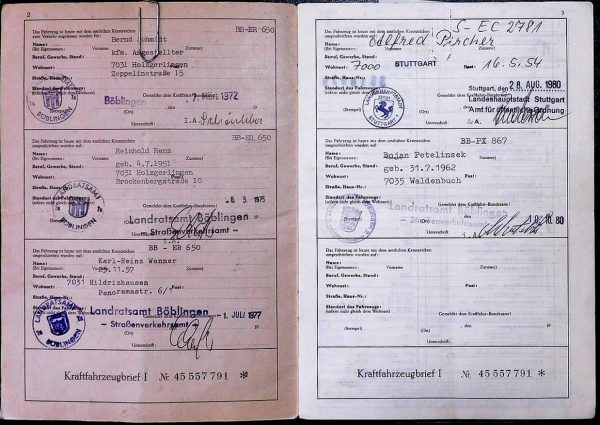 2
Das Fahrzeug ist heute mit dem amtlichen Kennzeichen
BB-ER 650
zum Verkehr zugelassen worden für:
Name: Bernd Schmidt
(Bei Eigennamen: Vorname Zuname)
Beruf, Gewerbe, Stand: kfm. Angestellter
Wohnort: 7031 Holzgerlingen
Straße, Haus-Nr.: Zeppelinstraße 15
Standort des Fahrzeugs:
(sofern nicht gleich dem Wohnort)
Böblingen
7. März 1972
(Ort)
I.A.
LANDRATSAMT
BÖBLINGEN
Das Fahrzeug ist heute mit dem amtlichen Kennzeichen
BB-ER 650
umgeschrieben worden auf:
Name: Reinhold Renz
(Bei Eigennamen: Vorname Zuname)
Beruf, Gewerbe, Stand: geb. 4.7.1951
Wohnort: 7031 Holzgerlingen
Straße, Haus-Nr.: Brockenbergstraße 10
Standort des Fahrzeugs:
(sofern nicht gleich dem Wohnort)
6. 3. 1975
Landratsamt Böblingen
- Straßenverkehrsamt -
LANDRATSAMT
BÖBLINGEN
Das Fahrzeug ist heute mit dem amtlichen Kennzeichen
BB - ER 650
umgeschrieben worden auf:
Name: Karl-Heinz Wanner
(Bei Eigennamen: Vorname Zuname)
Beruf, Gewerbe, Stand: 23.11.57
Wohnort: 7031 Hildrizhausen
Straße, Haus-Nr.: Panoramastr. 6/
Standort des Fahrzeugs:
Gemeldet dem Kraftfahrt-Bundesamt
Landratsamt Böblingen
- Straßenverkehrsamt -
- 1. JULI 1977
(Ort)
Unterschrift:
LANDRATSAMT
BÖBLINGEN
Kraftfahrzeugbrief I № 45 557 791 ✻
3
Das Fahrzeug ist heute mit dem amtlichen Kennzeichen
S-EC 2781
umgeschrieben worden auf:
Name: Alfred Pircher
(Bei Eigennamen: Vorname Zuname)
Beruf, Gewerbe, Stand: 16.5.54
Wohnort: 7000 STUTTGART
Straße, Haus-Nr.:
Standort des Fahrzeugs:
(sofern nicht gleich dem Wohnort)
Stuttgart, den 28. AUG. 1980
Landeshauptstadt Stuttgart
Amt für öffentliche Ordnung
I.A.
LANDESHAUPTSTADT
STUTTGART
Das Fahrzeug ist heute mit dem amtlichen Kennzeichen
BB-PX 867
umgeschrieben worden auf:
Name: Bojan Petelinsek
(Bei Eigennamen: Vorname Zuname)
Beruf, Gewerbe, Stand: geb. 31.7.1962
Wohnort: 7035 Waldenbuch
Straße, Haus-Nr.:
Standort des Fahrzeugs:
(sofern nicht gleich dem Wohnort)
Landratsamt Böblingen
- Straßenverkehrsamt -
80
Das Fahrzeug ist heute mit dem amtlichen Kennzeichen
umgeschrieben worden auf:
Name:
(Bei Eigennamen: Vorname Zuname)
Beruf, Gewerbe, Stand:
Wohnort:
Straße, Haus-Nr.:
Standort des Fahrzeugs:
(sofern nicht gleich dem Wohnort)
Gemeldet dem Kraftfahrt-Bundesamt
(Stempel) (Ort) 19
Unterschrift:
Kraftfahrzeugbrief I № 45 557 791 ✻